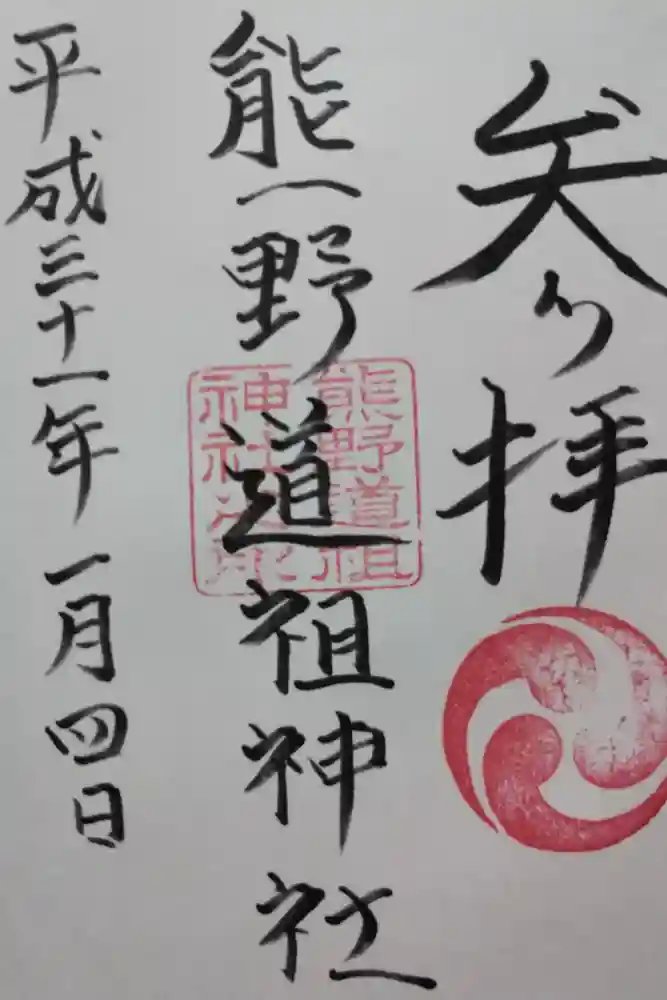 奉拝
熊野道祖神社
熊野道祖
神社之印
平成三十一年一月四日